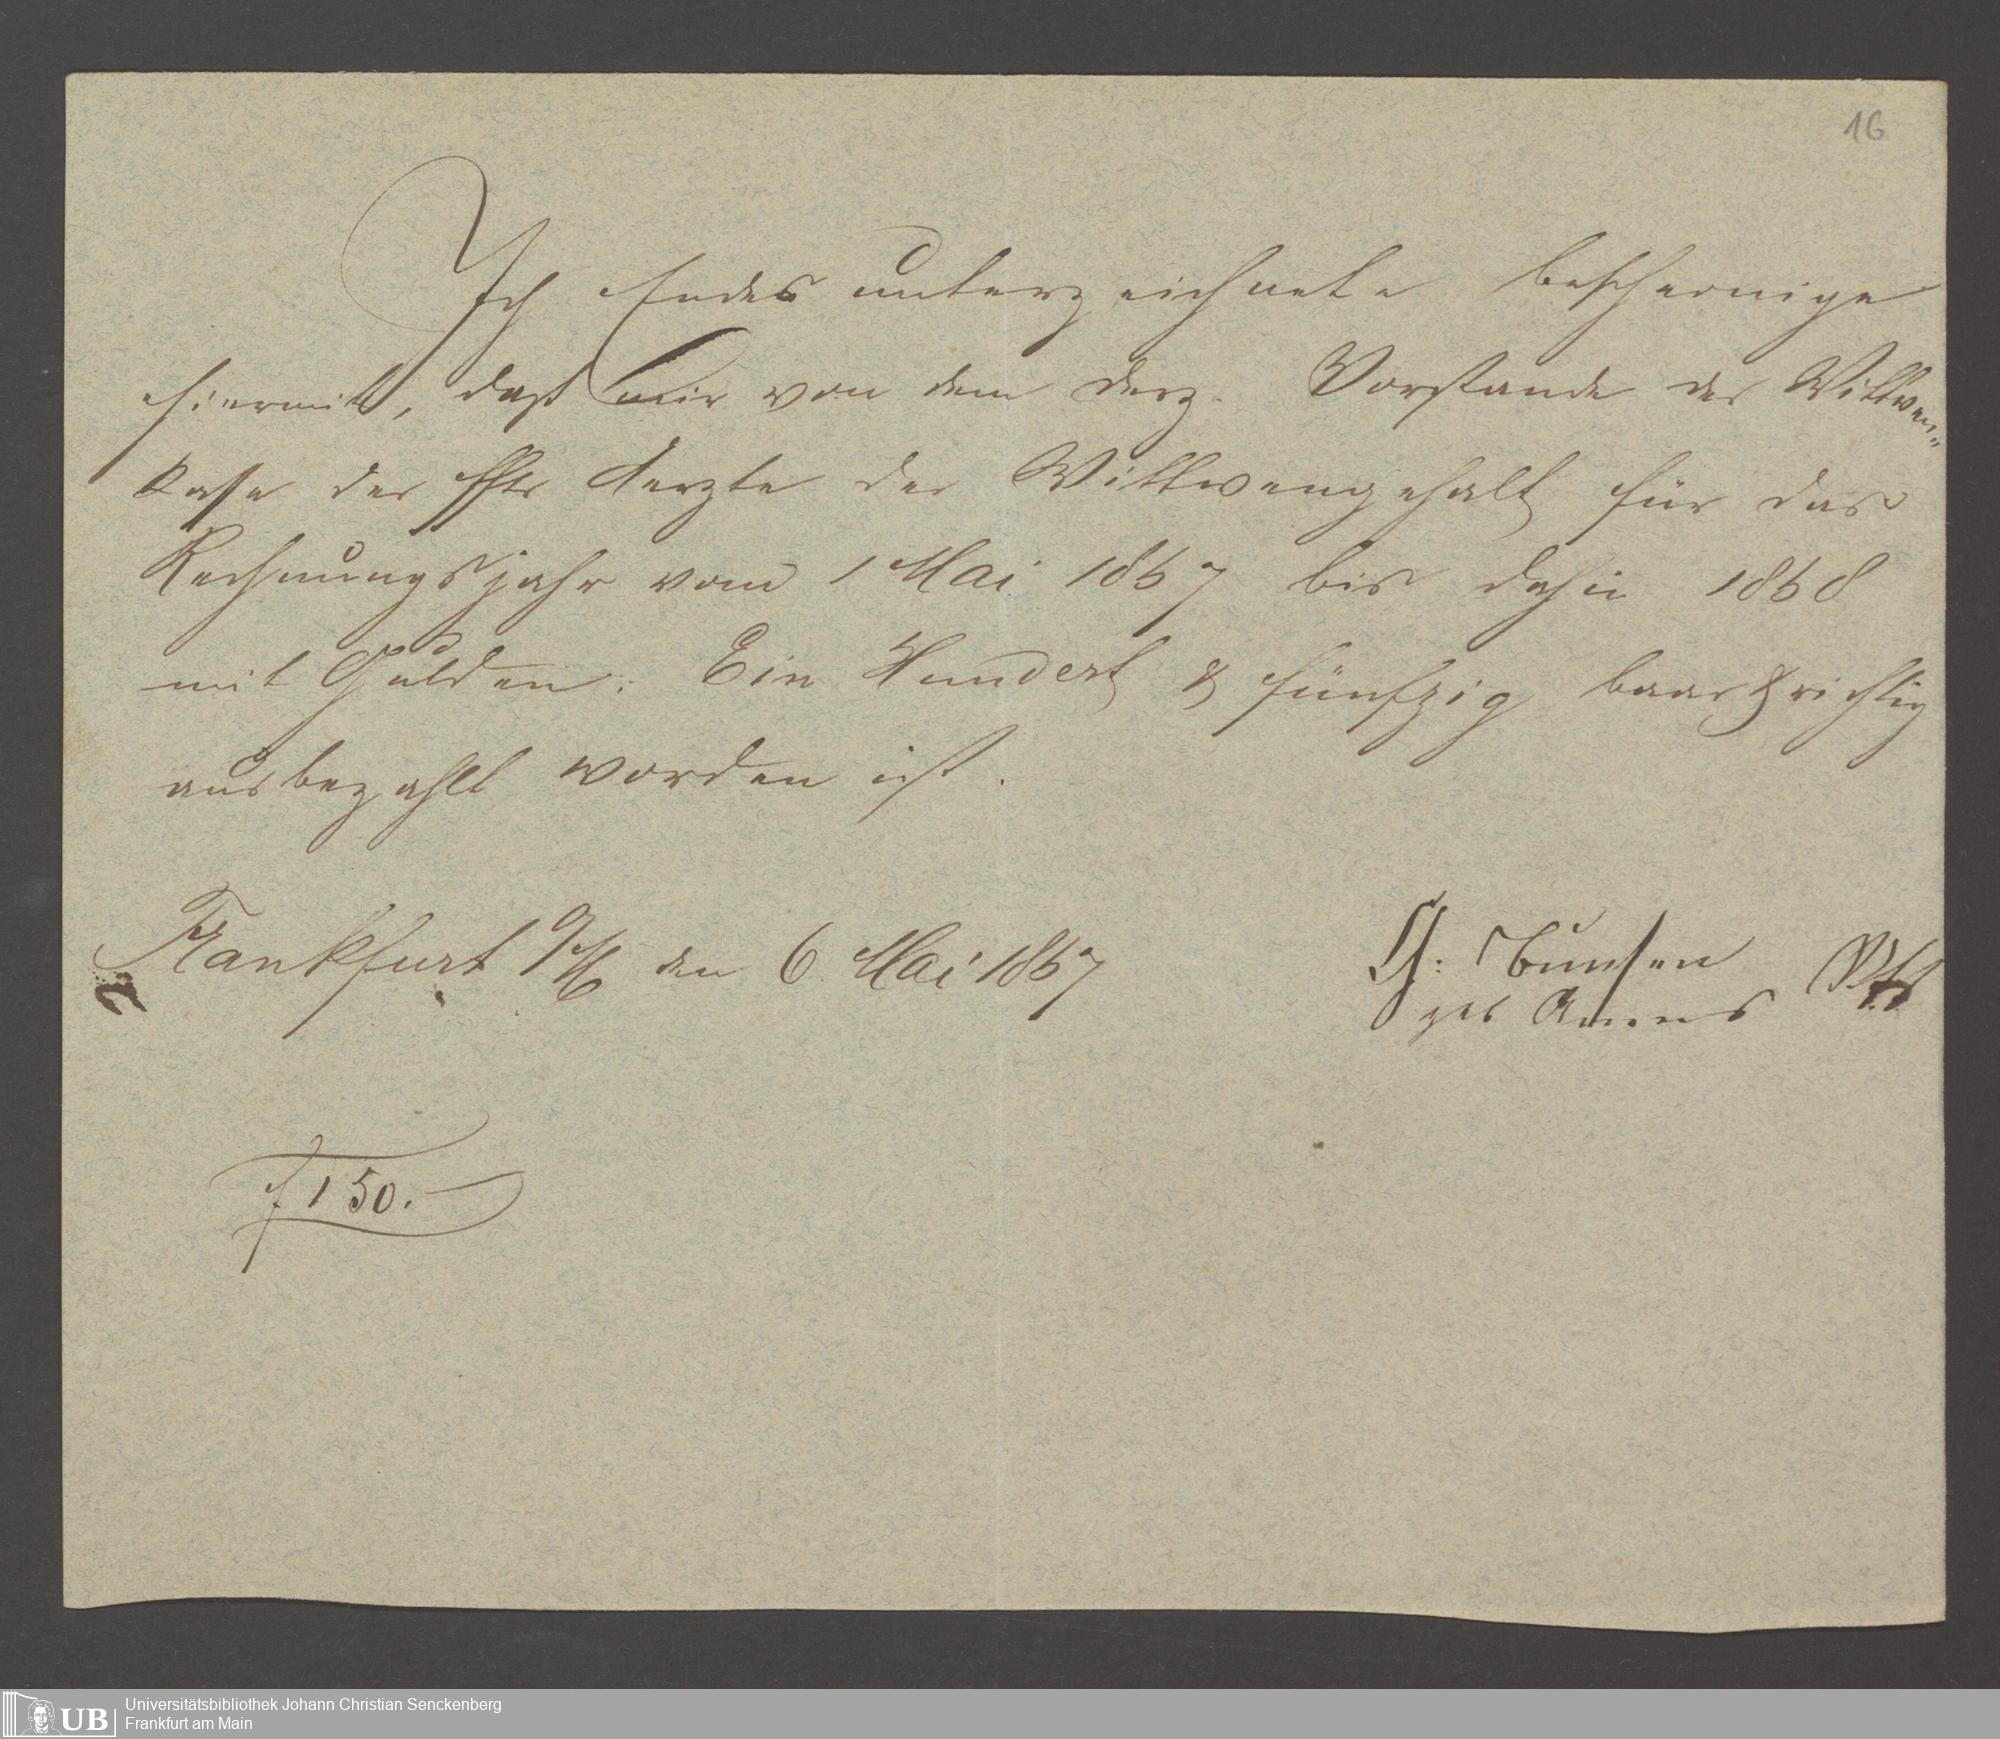 16
Ich Endes unterzeichnete bescheinige
hiermit, daß mir von dem derz. Vorstande der Wittwen-
kasse der Ffts Aerzte der Wittwengehalt für das
Rechnungsjahr vom 1 Mai 1867 bis dahin 1868
mit Gulden: Ein Hundert & fünfzig baar & richtig
ausbezahlt worden ist.
Frankfurt a/M den 6 Mai 1867
Ch: Bunsen
geb
f 150.—
UB
Universitätsbibliothek Johann Christian Senckenberg
Frankfurt am Main